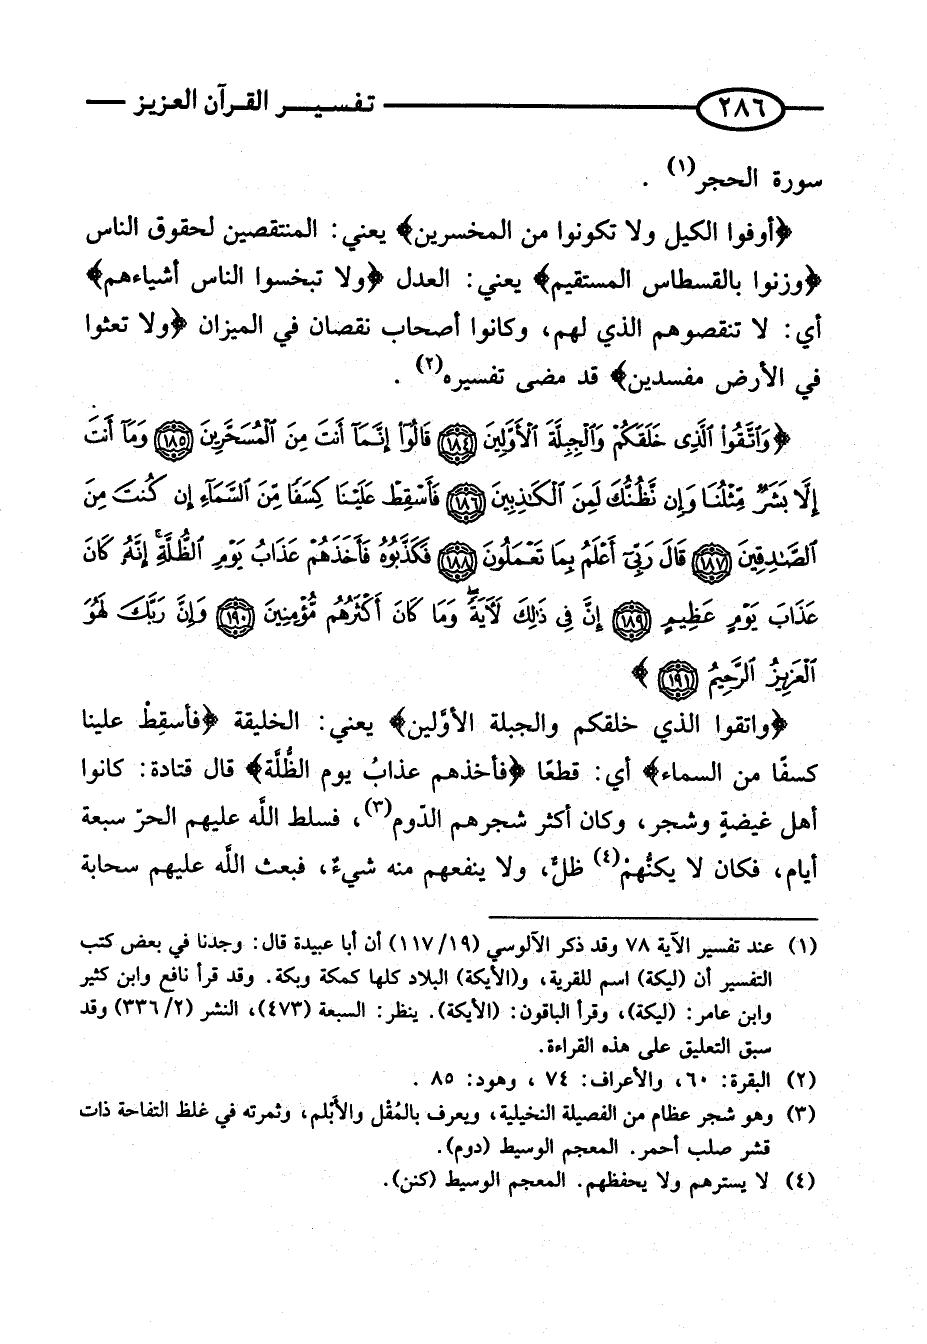 ٢٨٦ تفسير القرآن العزيز
سورة الحجر(١) .
﴿أوفوا الكيل ولا تكونوا من المخسرين﴾ يعني: المنتقصين لحقوق الناس
﴿وزنوا بالقسطاس المستقيم﴾ يعني: العدل ﴿ولا تبخسوا الناس أشياءهم﴾
أي: لا تنقصوهم الذي لهم، وكانوا أصحاب نقصان في الميزان ﴿ولا تعثوا
في الأرض مفسدين﴾ قد مضى تفسيره(٢) .
﴿وَٱتَّقُوا۟ ٱلَّذِى خَلَقَكُمْ وَٱلْجِبِلَّةَ ٱلْأَوَّلِينَ ١٨٤ قَالُوٓا۟ إِنَّمَآ أَنتَ مِنَ ٱلْمُسَحَّرِينَ ١٨٥ وَمَآ أَنتَ
إِلَّا بَشَرٌ مِّثْلُنَا وَإِن نَّظُنُّكَ لَمِنَ ٱلْكَـٰذِبِينَ ١٨٦ فَأَسْقِطْ عَلَيْنَا كِسَفًا مِّنَ ٱلسَّمَآءِ إِن كُنتَ مِنَ
ٱلصَّـٰدِقِينَ ١٨٧ قَالَ رَبِّىٓ أَعْلَمُ بِمَا تَعْمَلُونَ ١٨٨ فَكَذَّبُوهُ فَأَخَذَهُمْ عَذَابُ يَوْمِ ٱلظُّلَّةِ ۚ إِنَّهُۥ كَانَ
عَذَابَ يَوْمٍ عَظِيمٍ ١٨٩ إِنَّ فِى ذَٰلِكَ لَـَٔايَةً ۖ وَمَا كَانَ أَكْثَرُهُم مُّؤْمِنِينَ ١٩٠ وَإِنَّ رَبَّكَ لَهُوَ
ٱلْعَزِيزُ ٱلرَّحِيمُ ١٩١ ﴾
﴿واتقوا الذي خلقكم والجبلة الأوَّلين﴾ يعني: الخليقة ﴿فأسقِطْ علينا
كسفًا من السماء﴾ أي: قطعًا ﴿فأخذهم عذابُ يوم الظُّلَّة﴾ قال قتادة: كانوا
أهل غيضةٍ وشجر، وكان أكثر شجرهم الدّوم(٣)، فسلط اللَّه عليهم الحرّ سبعة
أيام، فكان لا يكنُّهمْ(٤) ظلٌّ، ولا ينفعهم منه شيءٌ، فبعث اللَّه عليهم سحابة
(١) عند تفسير الآية ٧٨ وقد ذكر الآلوسي (١٩/ ١١٧) أن أبا عبيدة قال: وجدنا في بعض كتب
التفسير أن (ليكة) اسم للقرية، و(الأيكة) البلاد كلها كمكة وبكة. وقد قرأ نافع وابن كثير
وابن عامر: (ليكة)، وقرأ الباقون: (الأيكة). ينظر: السبعة (٤٧٣)، النشر (٢/ ٣٣٦) وقد
سبق التعليق على هذه القراءة.
(٢) البقرة: ٦٠، والأعراف: ٧٤ ، وهود: ٨٥ .
(٣) وهو شجر عظام من الفصيلة النخيلية، ويعرف بالمُقْل والأُبْلم، وثمرته في غلظ التفاحة ذات
قشر صلب أحمر. المعجم الوسيط (دوم).
(٤) لا يسترهم ولا يحفظهم. المعجم الوسيط (كنن).